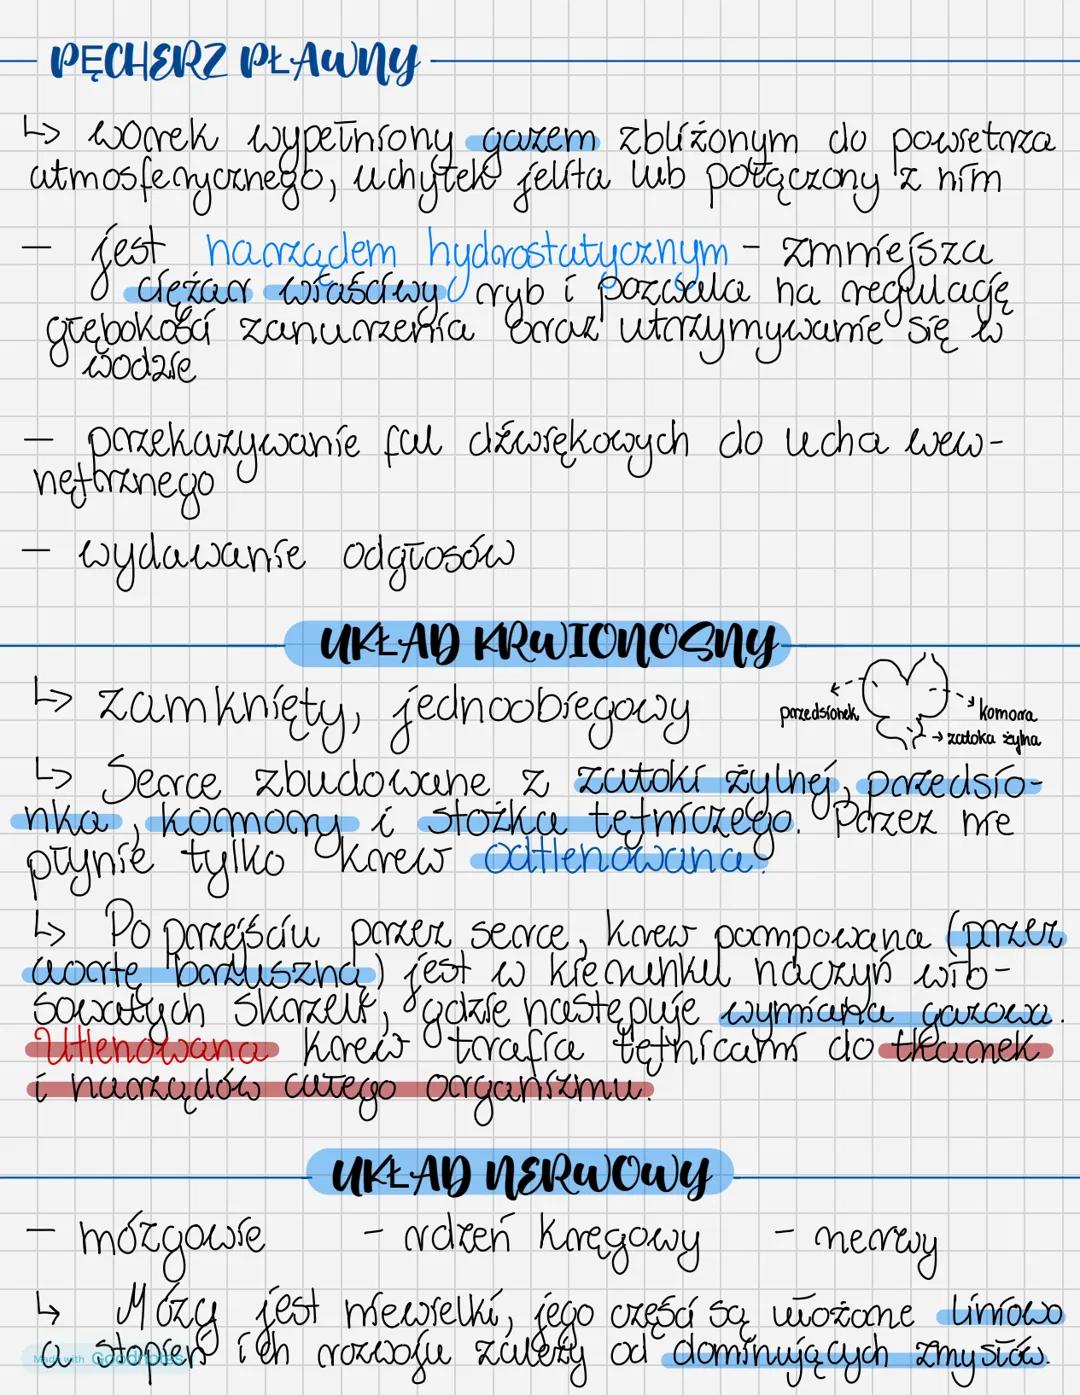 PĘCHERZ PŁAWNY
↳ worek wypełniony gazem zbliżonym do powietrza
atmosferycznego, uchyłek jelita lub połączony z nim
— jest narządem hydrostatycznym - zmniejsza
ciężar właściwy ryb i pozwala na regulację
głębokości zanurzenia oraz utrzymywanie się w
wodzie
— przekazywanie fal dźwiękowych do ucha wew-
nętrznego
— wydawanie odgłosów
UKŁAD KRWIONOSNY
↳ zamknięty, jednoobiegowy
przedsionek
komora
→ zatoka żylna
↳ Serce zbudowane z zatoki żylnej, przedsio-
nka, komory i stożka tętniczego. Przez nie
płynie tylko krew odtlenowana!
↳ Po przejściu przez serce, krew pompowana (przez
aortę brzuszną) jest w kierunku naczyń wło-
sowatych skrzeli, gdzie następuje wymiana gazowa.
Utlenowana krew trafia tętnicami do tkanek
i narządów całego organizmu.
UKŁAD NERWOWY
— mózgowie - rdzeń kręgowy - nerwy
↳ Mózg jest niewielki, jego części są ułożone liniowo
a stopień ich rozwoju zależy od dominujących zmysłów.
Made with Goodnotes